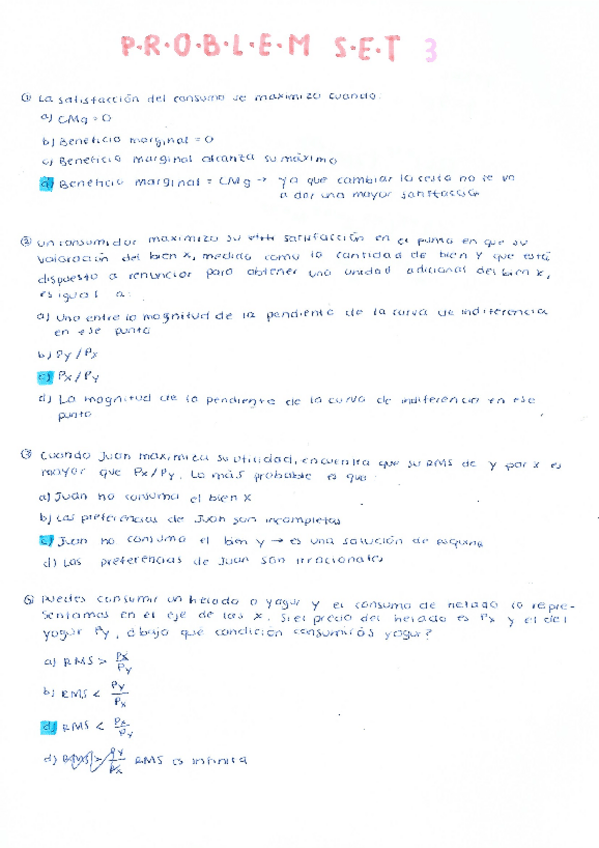 P·R·O·B·L·E·M S·E·T 3
① La satisfacción del consumo se maximiza cuando:
a) CMg = 0
b) Beneficio marginal = 0
c) Beneficio marginal alcanza su máximo
d) Beneficio marginal = CMg → ya que cambiar la cesta no le va
a dar una mayor satisfacción
② Un consumidor maximiza su satisfacción en el punto en que su
valoración del bien X, medida como la cantidad de bien Y que está
dispuesto a renunciar para obtener una unidad adicional del bien X,
es igual a:
a) Uno entre la magnitud de la pendiente de la curva de indiferencia
en ese punto
b) Py/Px
c) Px/Py
d) La magnitud de la pendiente de la curva de indiferencia en ese
punto
③ Cuando Juan maximiza su utilidad, encuentra que su RMS de y por x es
mayor que Px/Py. Lo más probable es que:
a) Juan no consuma el bien X
b) Las preferencias de Juan son incompletas
c) Juan no consuma el bien y → es una solución de esquina
d) Las preferencias de Juan son irracionales
⑤ Puedes consumir un helado o yogur y el consumo de helado lo repre-
sentamos en el eje de las x. Si el precio del helado es Px y el del
yogur Py, ¿bajo que condición consumirás yogur?
a) RMS > Px/Py
b) RMS < Py/Px
RMS < Px/Py
d) RMS es infinita